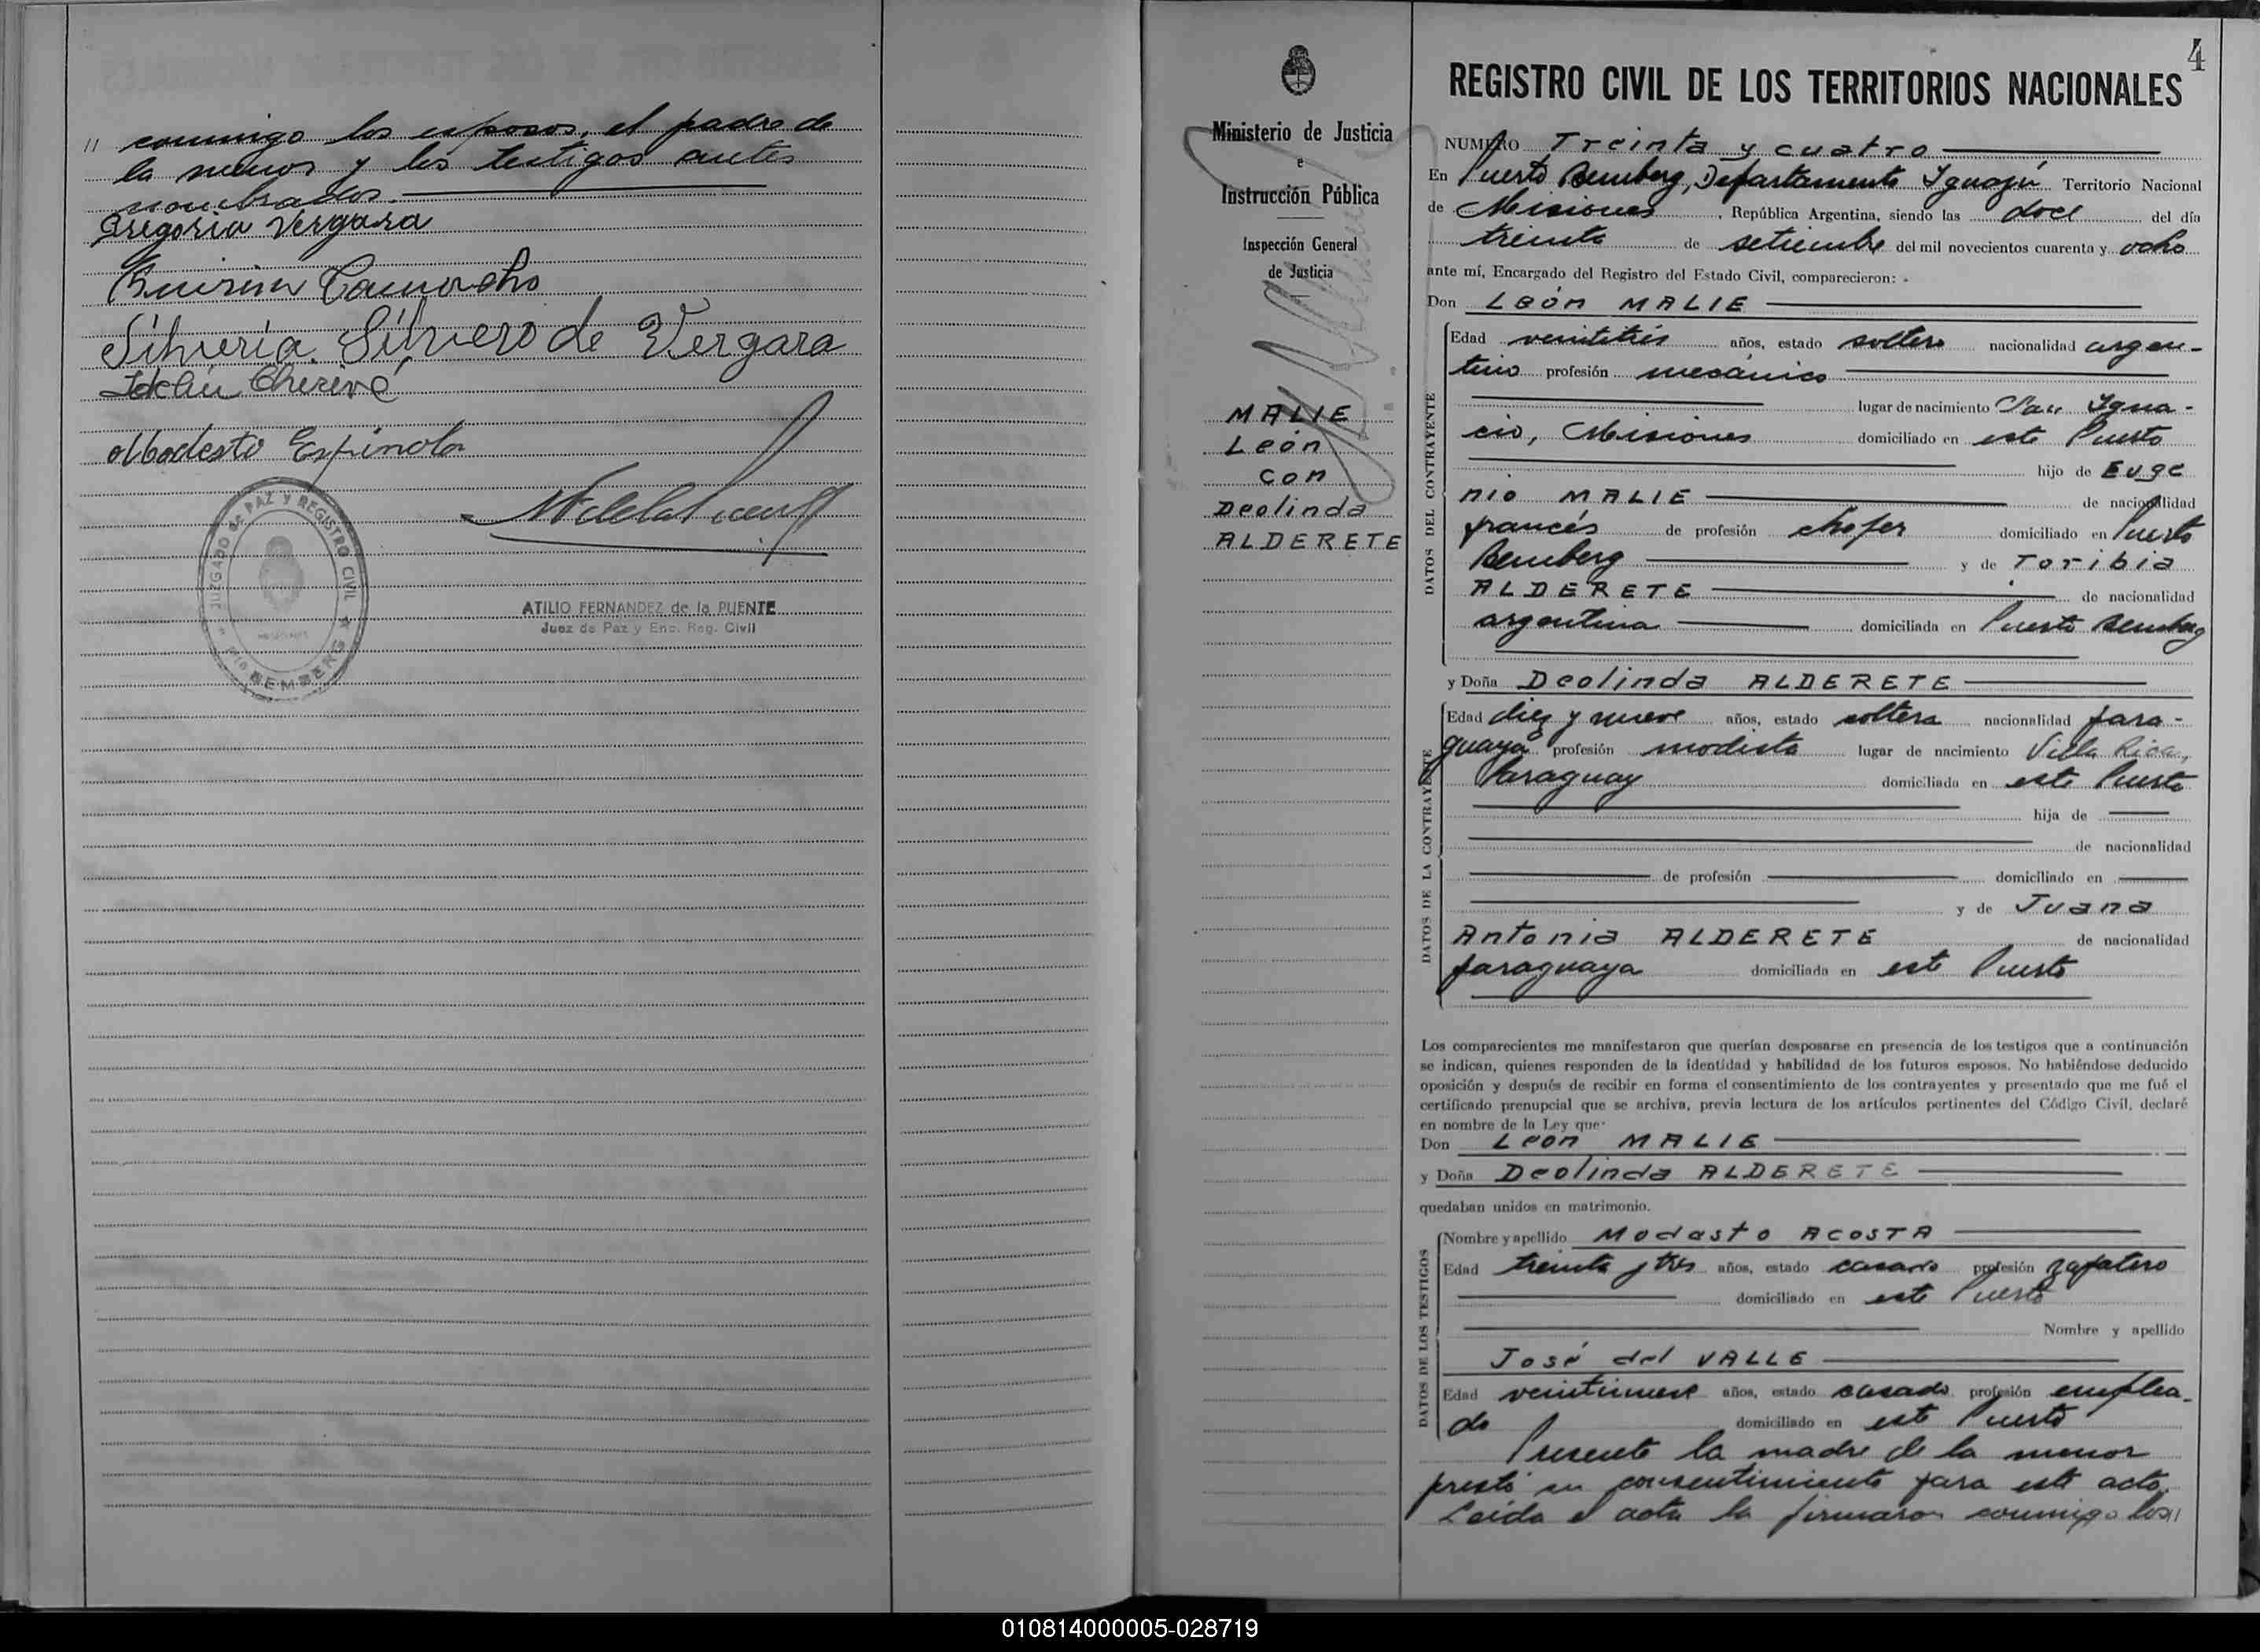 " conmigo los esposos, el padre de
la menor y los testigos antes
nombrados.
Gregoria Vergara
Camacho
Silveria Silvero de Vergara
Modesto Espinola
JUZGADO de PAZ Y REGISTRO CIVIL
Pto BEMBERG
ATILIO FERNANDEZ de la PUENTE
Juez de Paz y Enc. Reg. Civil
Ministerio de Justicia
e
Instrucción Pública
Inspección General
de Justicia
MALIE
León
con
Deolinda
ALDERETE
4
REGISTRO CIVIL DE LOS TERRITORIOS NACIONALES
NUMERO Treinta y cuatro
En Puerto Bemberg, Departamento Iguazú Territorio Nacional
de Misiones, República Argentina, siendo las doce del día
treinta de setiembre del mil novecientos cuarenta y ocho
ante mí, Encargado del Registro del Estado Civil, comparecieron:
Don León MALIE
DATOS DEL CONTRAYENTE
Edad veintitrés años, estado soltero nacionalidad argen-
tino profesión mecánico
lugar de nacimiento San Igna-
cio, Misiones domiciliado en este Puerto
hijo de Euge
nio MALIE de nacionalidad
francés de profesión chofer domiciliado en Puerto
Bemberg y de Toribia
ALDERETE de nacionalidad
argentina domiciliada en Puerto Bemberg
y Doña Deolinda ALDERETE
DATOS DE LA CONTRAYENTE
Edad diez y nueve años, estado soltera nacionalidad para-
guaya profesión modista lugar de nacimiento Villa Rica,
Paraguay domiciliada en este Puerto
hija de
de nacionalidad
de profesión domiciliado en
y de Juana
Antonia ALDERETE de nacionalidad
paraguaya domiciliada en este Puerto
Los comparecientes me manifestaron que querían desposarse en presencia de los testigos que a continuación
se indican, quienes responden de la identidad y habilidad de los futuros esposos. No habiéndose deducido
oposición y después de recibir en forma el consentimiento de los contrayentes y presentado que me fué el
certificado prenupcial que se archiva, previa lectura de los artículos pertinentes del Código Civil, declaré
en nombre de la Ley que:
Don León MALIE
y Doña Deolinda ALDERETE
quedaban unidos en matrimonio.
DATOS DE LOS TESTIGOS
Nombre y apellido Modasto ACOSTA
Edad treinta y tres años, estado casado profesión zapatero
domiciliado en este Puerto
Nombre y apellido
José del VALLE
Edad veintinueve años, estado casado profesión emplea-
do domiciliado en este Puerto
Presente la madre de la menor
prestó su consentimiento para este acto.
Leída el acta la firmaron conmigo los"
010814000005-028719